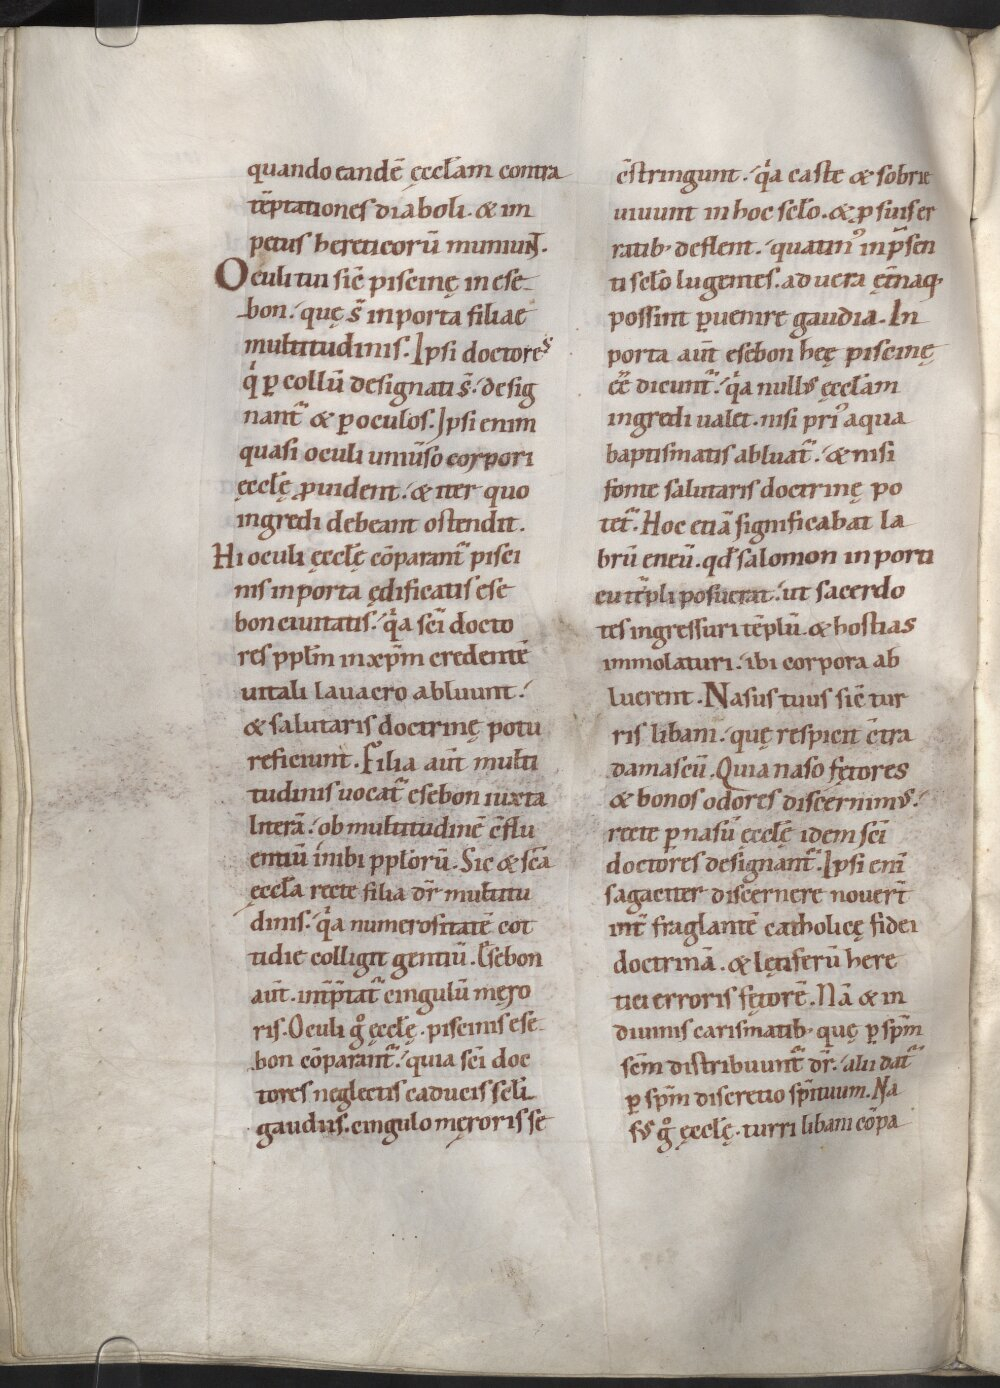 quando eandē ęccłam contra
tēptationes diaboli. & im
petus hereticorū muniunt.
Oculi tui sic̄ piscinę in ese
bon. quę s̄ in porta filiae
multitudinis. Ipsi doctores
q̇ ꝑ collū designati s̄. desig
nant̄ & ꝑ oculos. Ipsi enim
quasi oculi uniūso corpori
ęccłę ꝓuident. & iter quo
ingredi debeant ostendūt.
Hi oculi ęccłę cōparant̄ pisci
nis in porta ędificatis ese
bon ciuitatis. q̇a sc̄i docto
res ppłm in xp̄m credentē
uitali lauacro abluunt.
& salutaris doctrinę potu
reficiunt. Filia aūt multi
tudinis uocat̄ esebon iuxta
litterā. ob multitudinē c̄flu
entiū inibi ppłorū. Sic & sc̄a
ęccła recte filia dr̄ multitu
dinis. q̇a numerositatē cot
tidie colligit gentiū. Esebon
aūt. int̄p̄tat̄ cingulū męro
ris. Oculi g̊ ęccłę. piscinis ese
bon cōparant̄. quia sc̄i doc
tores neglectis caducis scłi
gaudiis. cingulo męroris se
c̄stringunt. q̇a caste & sobrie
uiuunt in hoc scło. & ꝑ suis er
ratib; deflent. quatin᾽ in p̄sen
ti scło lugentes. ad uera ęt̄naq;
possint ꝑuenire gaudia. In
porta aūt esebon hęę piscinę
ēē dicunt̄. q̇a null᾽ ęccłam
ingredi ualet. nisi pri᾽ aqua
baptismatis abluat̄. & nisi
fonte salutaris doctrinę po
tet̄. Hoc etiā significabat la
brū eneū. qđ salomon in porti
cu tēpli posuerat. ut sacerdo
tes ingressuri tēplū. & hostias
immolaturi. ibi corpora ab
luerent. Nasus tuus sic̄ tur
ris libani. quę respicit c̄tra
damascū. Quia naso fętores
& bonos odores discernim᾽.
recte ꝑ nasū ęccłę idem sc̄i
doctores designant̄. Ipsi enī
sagaciter discernere nouerт̄
int̄ fraglantē catholicę fidei
doctrinā. & lętiferū here
tici erroris fętorē. Nā & in
diuinis carismatib; quę ꝑ sp̄m
sc̄m distribuunt̄ dr̄. alii dat̄
ꝑ sp̄m discretio sp̄ituum. Na
s᾽ g̊ ęccłę. turri libani cōpa